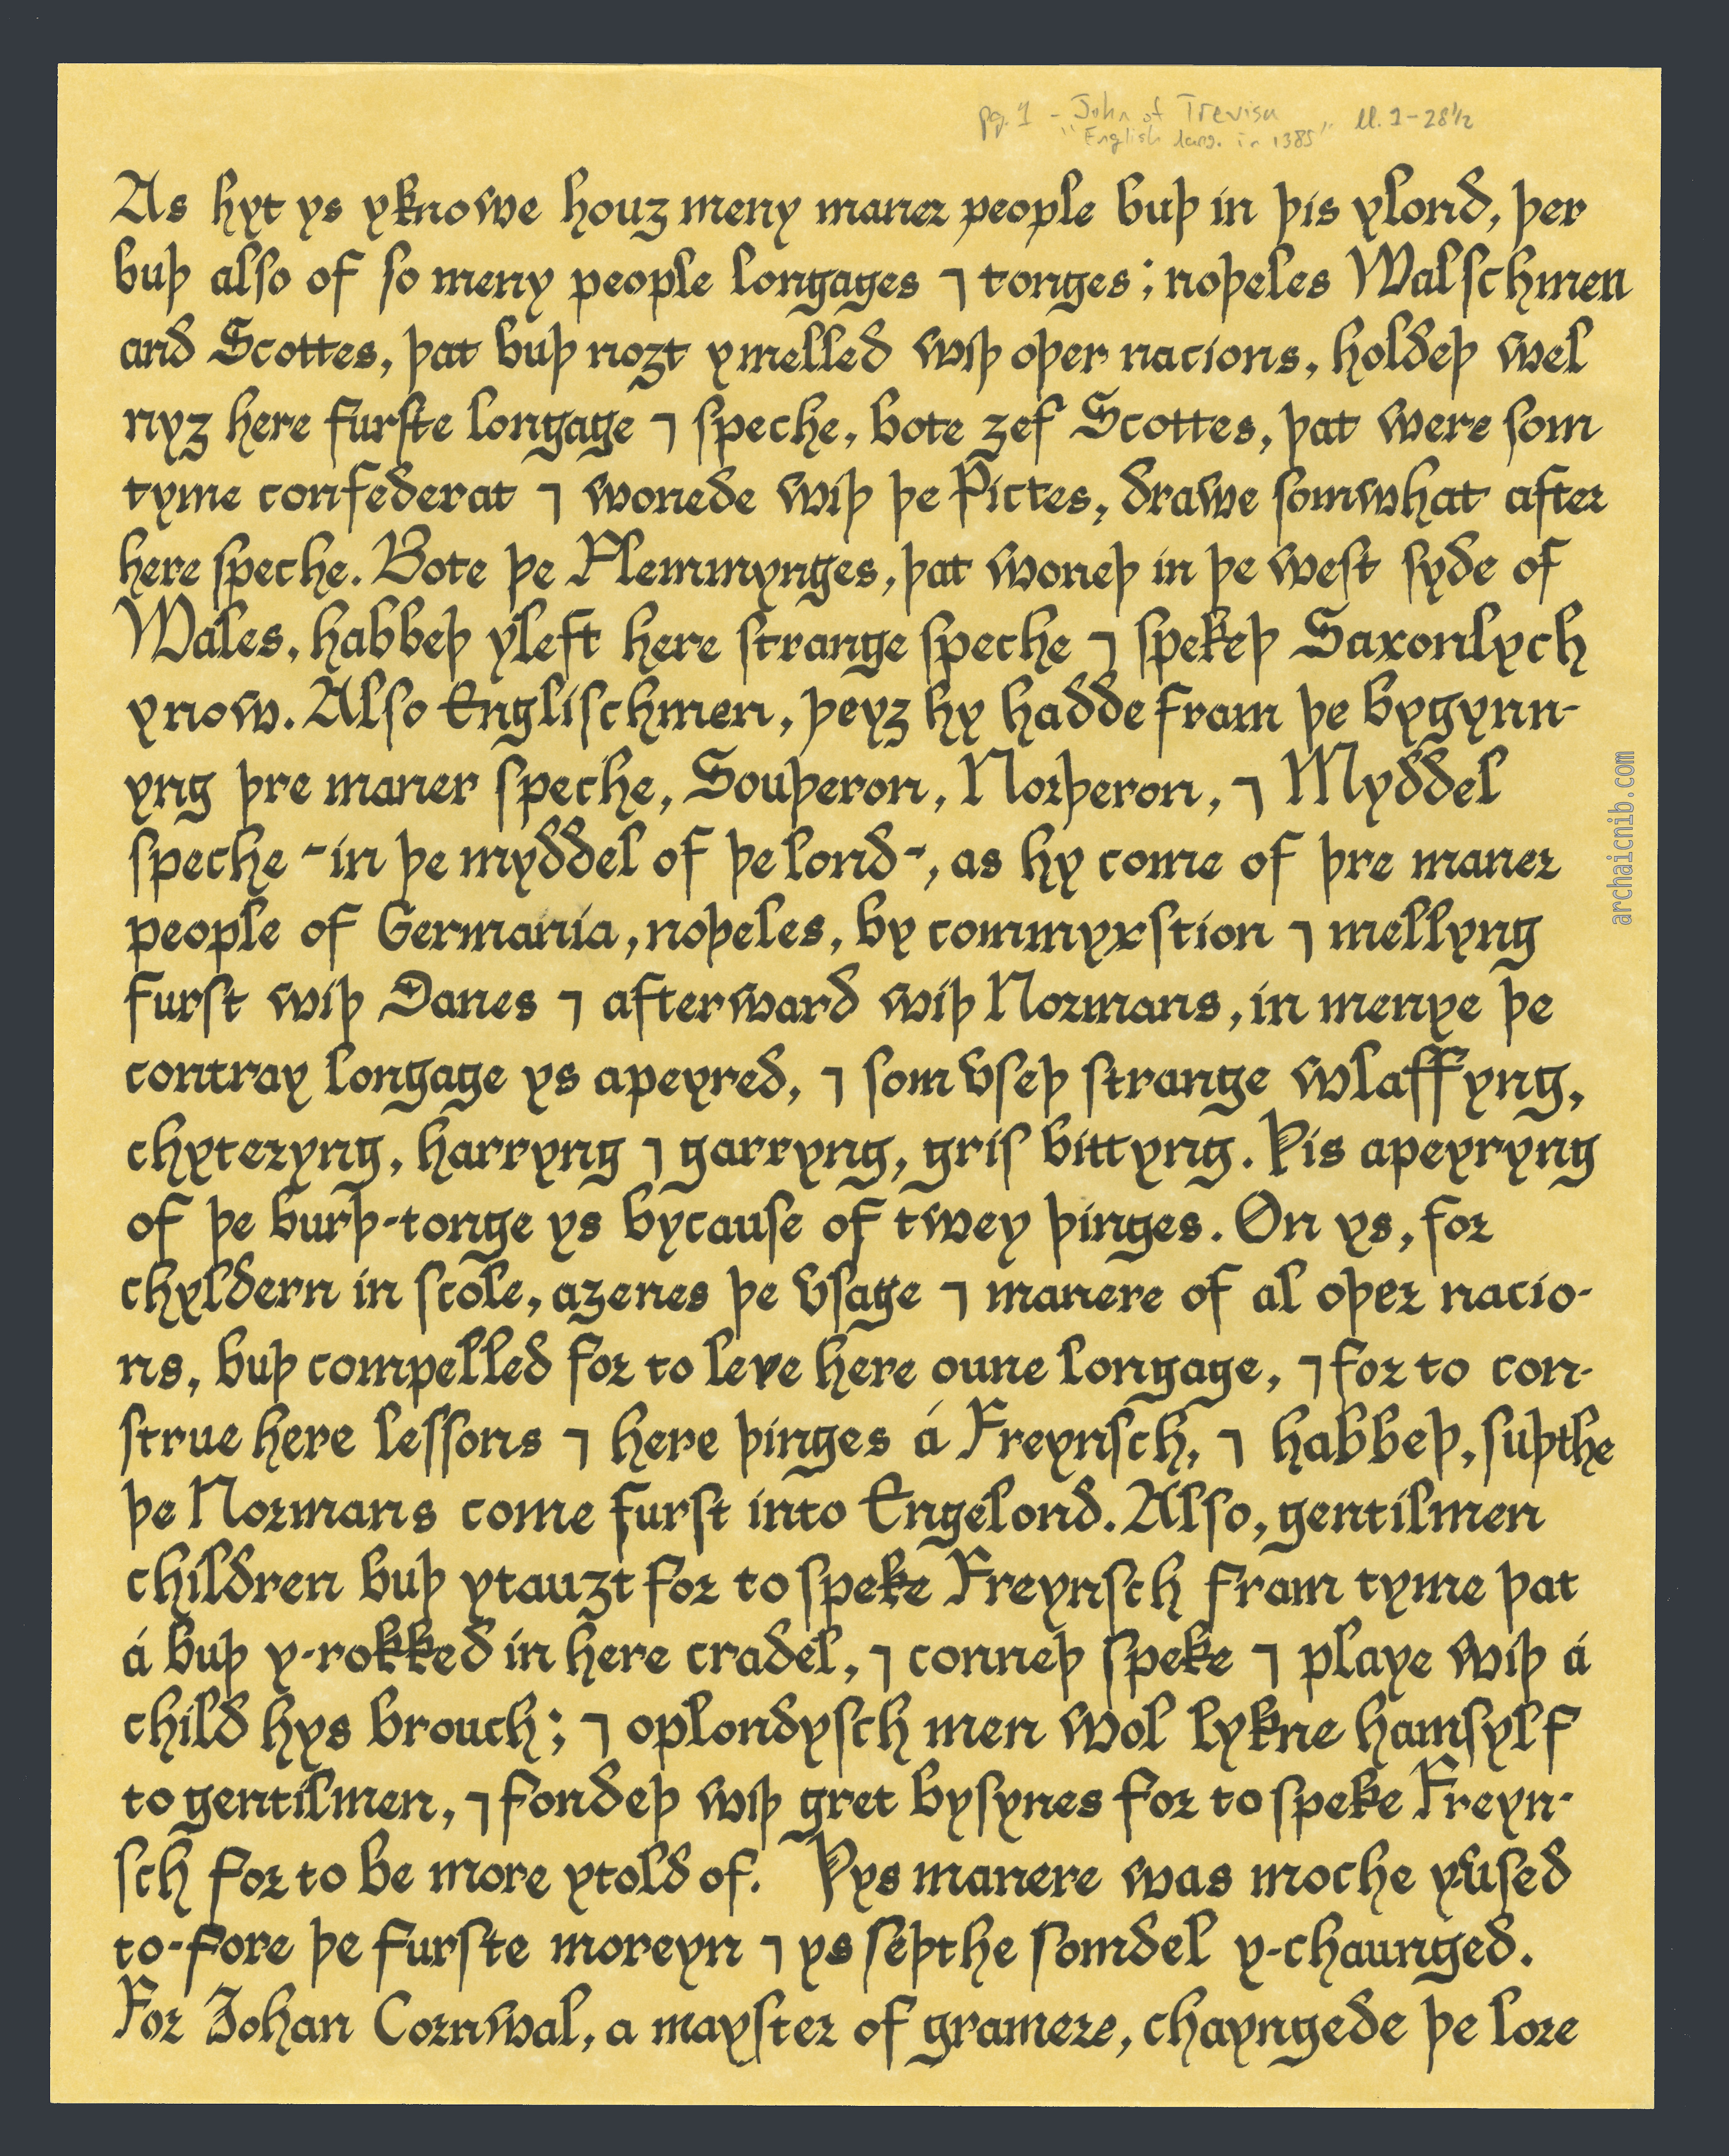 pg. 1 - John of Trevisa ll. 1-28½
"English lang. in 1385"
As hyt ys yknowe houȝ meny maner people buþ in þis ylond, þer
buþ also of so meny people longages ⁊ tonges; noþeles Walschmen
and Scottes, þat buþ noȝt ymelled wiþ oþer nacions, holdeþ wel
nyȝ here furste longage ⁊ speche, bote ȝef Scottes, þat were som
tyme confederat ⁊ wonede wiþ þe Pictes, drawe somwhat after
here speche. Bote þe Flemmynges, þat woneþ in þe west syde of
Wales, habbeþ yleft here strange speche ⁊ spekeþ Saxonlych
ynow. Also Englischmen, þeyȝ hy hadde fram þe bygynn-
yng þre maner speche, Souþeron, Norþeron, ⁊ Myddel
speche -in þe myddel of þe lond-, as hy come of þre maner
people of Germania, noþeles, by commyxstion ⁊ mellyng
furst wiþ Danes ⁊ afterward wiþ Normans, in menye þe
contray longage ys apeyred, ⁊ som vseþ strange wlaffyng,
chyteryng, harryng ⁊ garryng, gris bittyng. Þis apeyryng
of þe burþ-tonge ys bycause of twey þinges. On ys, for
chyldern in scole, aȝenes þe vsage ⁊ manere of al oþer nacio-
ns, buþ compelled for to leve here oune longage, ⁊ for to con-
strue here lessons ⁊ here þinges á Freynsch, ⁊ habbeþ, suþthe
þe Normans come furst into Engelond. Also, gentilmen
children buþ ytauȝt for to speke Freynsch fram tyme þat
á buþ y-rokked in here cradel, ⁊ conneþ speke ⁊ playe wiþ á
child hys brouch; ⁊ oplondysch men wol lykne hamsylf
to gentilmen, ⁊ fondeþ wiþ gret bysynes for to speke Freyn-
sch for to be more ytold of. Þys manere was moche yused
to-fore þe furste moreyn ⁊ ys seþthe somdel y-chaunged.
For Johan Cornwal, a mayster of gramere, chayngede þe lore
archaicnib.com